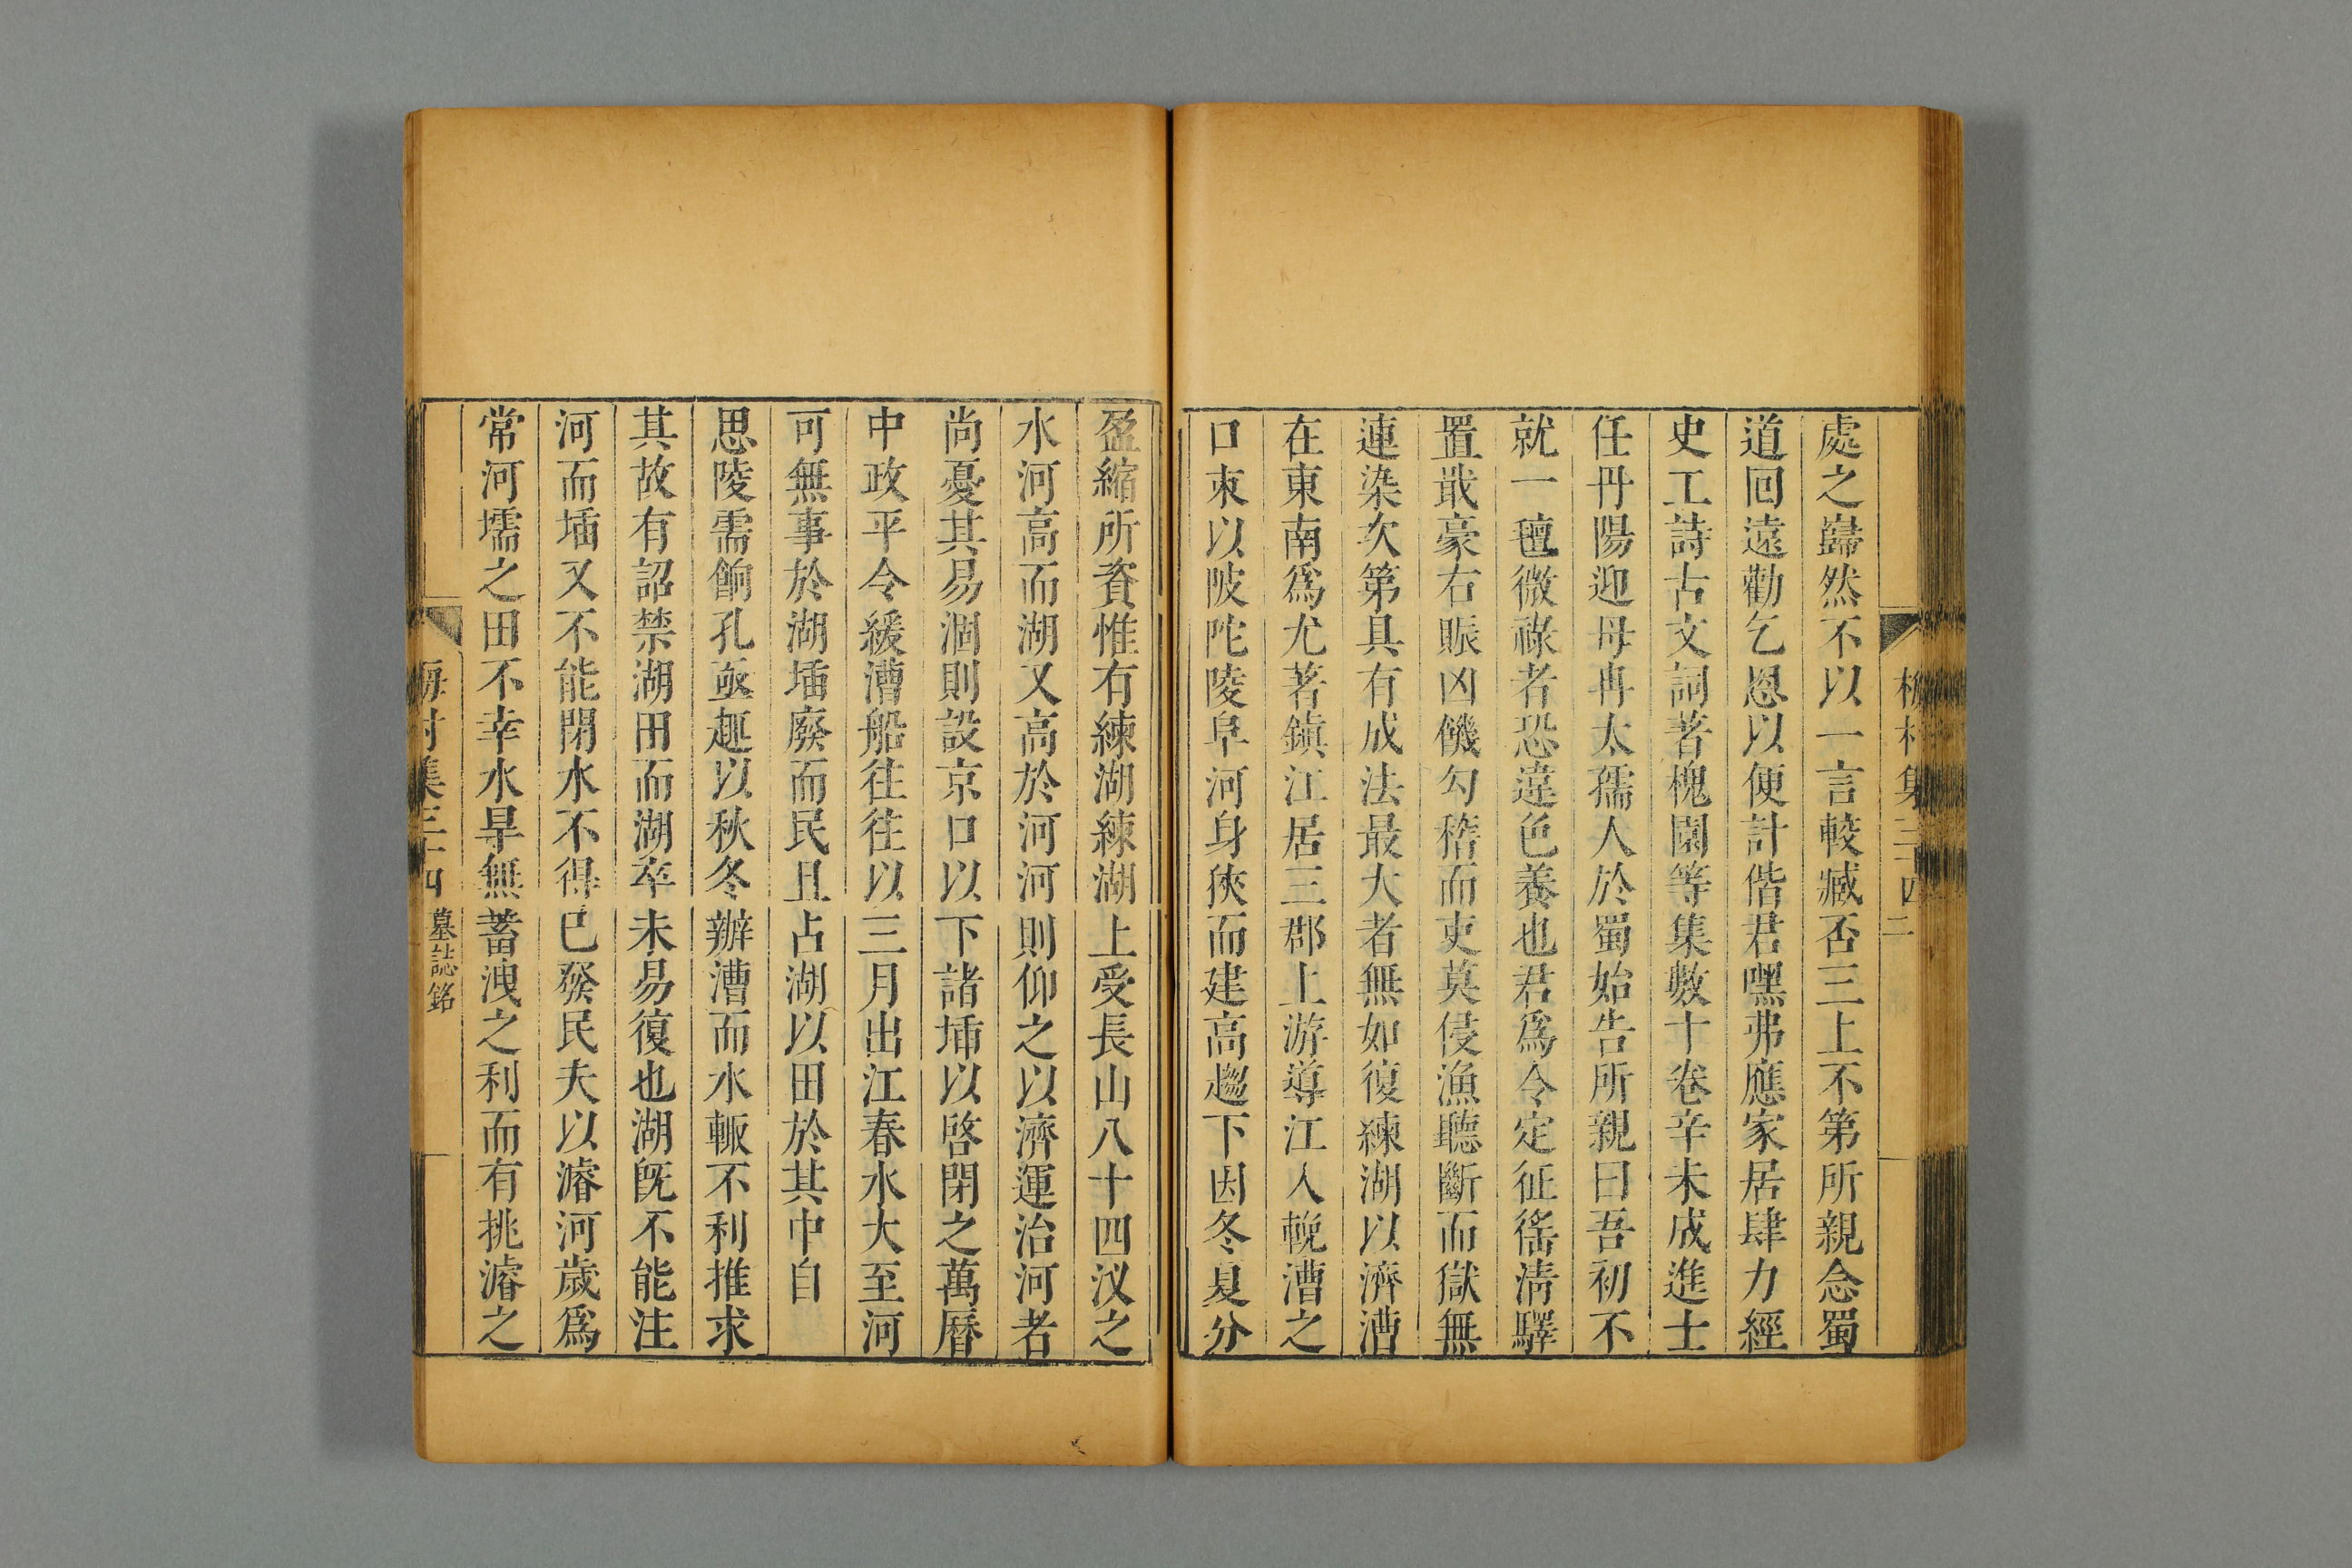 處之巋然不以一言較臧否三上不第所親念蜀
道回遠勸乞恩以便計偕君嘿弗應家居肆力經
史工詩古文詞著槐園等集數十卷辛未成進士
任丹陽迎母冉太孺人於蜀始告所親曰吾初不
就一氊微祿者恐違色養也君爲令定征徭淸驛
置戢豪右賑凶饑勾稽而吏莫侵漁聽斷而獄無
連染次第具有成法最大者無如復練湖以濟漕
在東南爲尤著鎭江居三郡上游導江入輓漕之
口束以陂陀陵阜河身狹而建高趨下因冬夏分
盈縮所資惟有練湖練湖上受長山八十四汊之
水河高而湖又高於河河則仰之以濟運治河者
尚憂其易涸則設京口以下諸埇以啓閉之萬曆
中政平令緩漕船往往以三月出江春水大至河
可無事於湖埇廢而民且占湖以田於其中自
思陵需餉孔亟趣以秋冬辦漕而水輒不利推求
其故有詔禁湖田而湖卒未易復也湖旣不能注
河而埇又不能閉水不得巳發民夫以濬河歲爲
常河壖之田不幸水旱無蓄洩之利而有挑濬之
梅村集三十四 墓誌銘